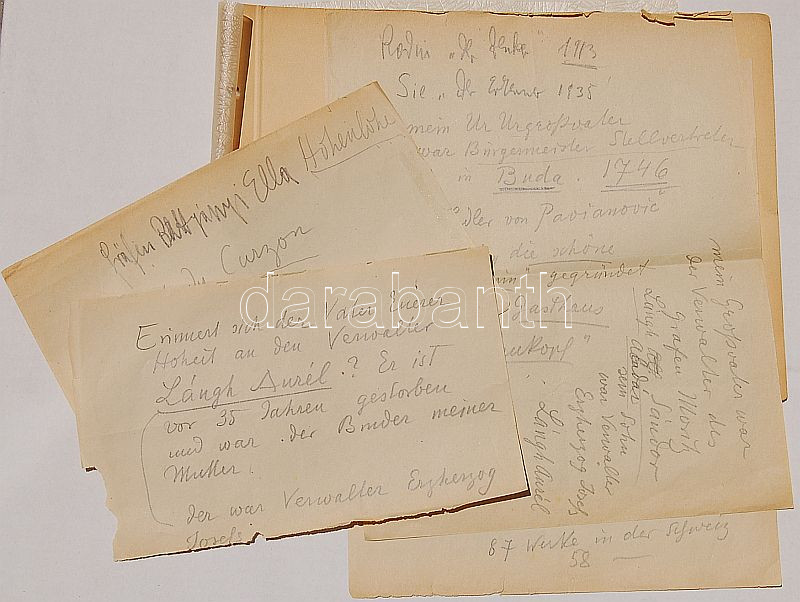 Rodin "Der Denker" 1913
Sie "Der Erkenner 1935
mein Ur Urgroßvater
war Bürgermeister Stellvertreter
in Buda. 1746
dler von Pavianovič
die schöne
in" gegründet
Gasthaus
kopf"
Gräfin Batthyányi Ella Hohenlohe
Curzon
Erinnert sich der Vater Euerer
Hoheit an den Verwalter
Lángh Aurél.? Er ist
vor 35 Jahren gestorben
und war der Bruder meiner
Mutter.
der war Verwalter Erzherzog
Josefs
mein Großvater war
der Verwalter des
Grafen Moritz
Sándor
Lángh
sein Sohn
war Verwalter
Erzherzog Josefs
Lángh Aurél
87 Werke in der Schweiz
58 —
darabanth